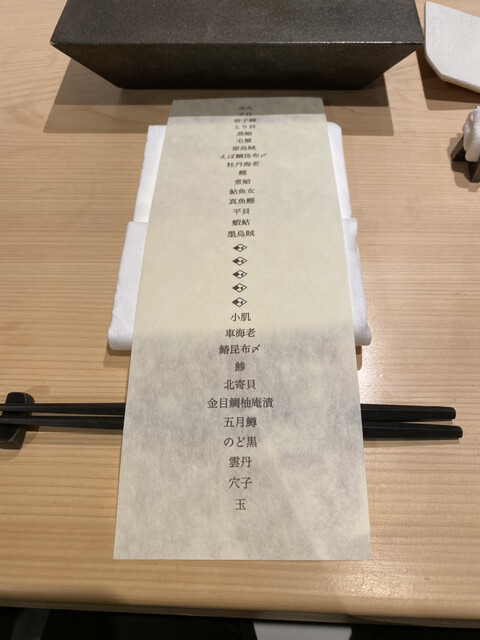 とり貝
蒸鮑
毛蟹
えぼ鯛昆布〆
牡丹海老
鰹
煮蛤
鮎魚女
真魚鰹
平貝
蝦蛄
墨烏賊
小肌
車海老
鰆昆布〆
鯵
北寄貝
金目鯛柚庵漬
五月鱒
のど黒
雲丹
穴子
玉